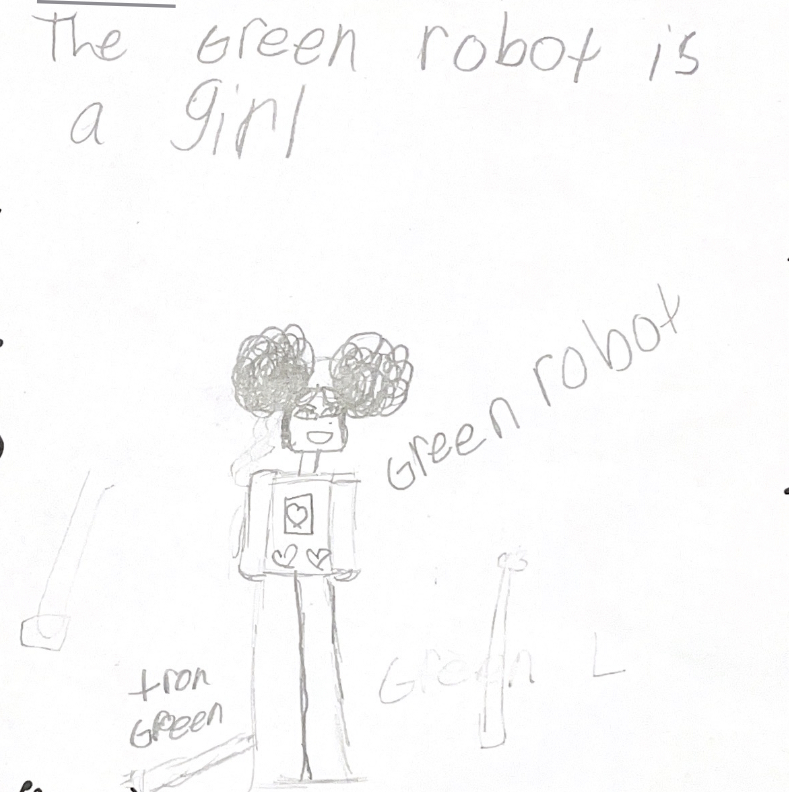 The Green robot is
a girl
Green robot
Green L
tron
Green